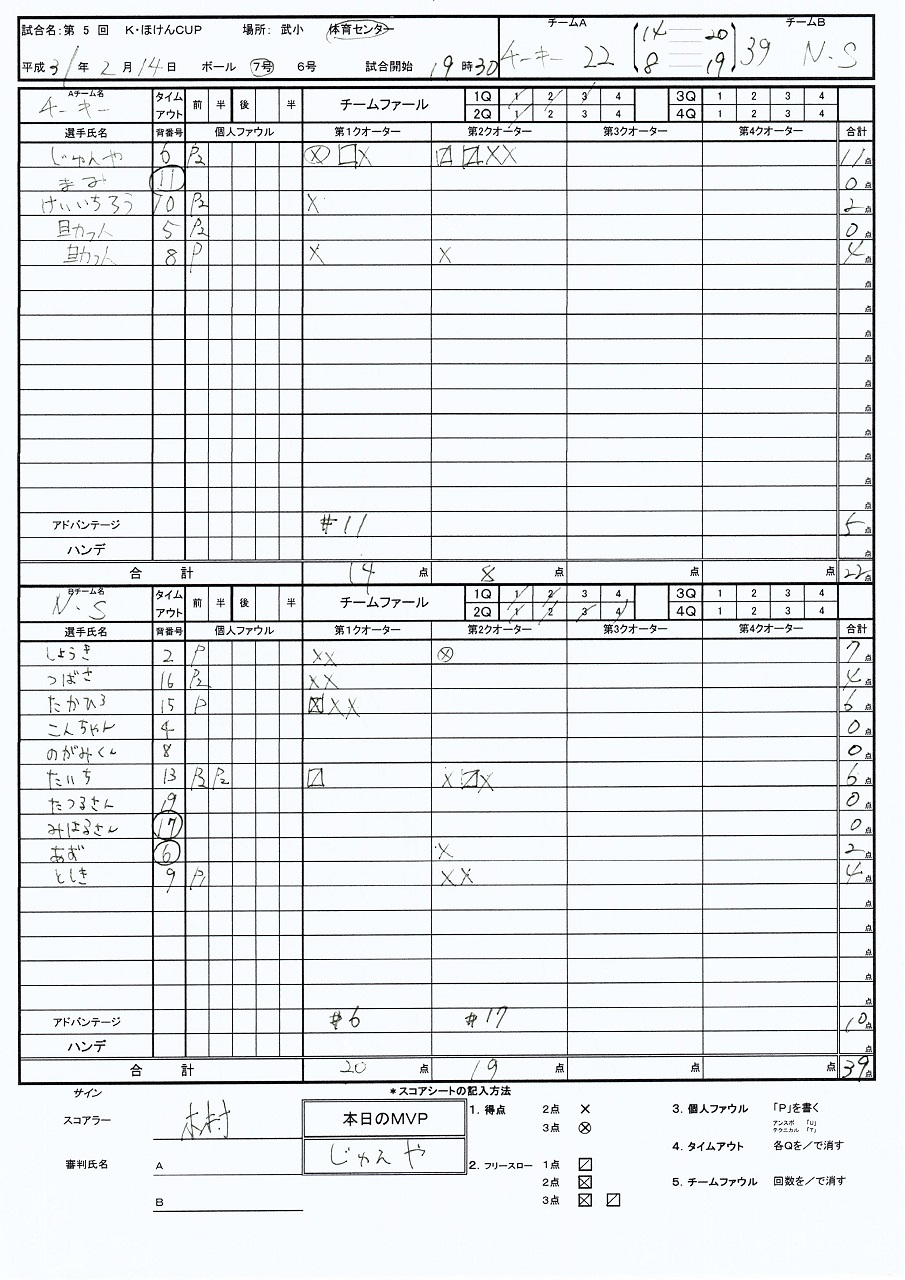 試合名:第 5 回 K・ほけんCUP 場所: 武小 体育センター
チームA チームB
チーキー 22 14 20 39 N・S
8 19
平成 31 年 2 月 14 日 ボール 7号 6号 試合開始 19 時 30
Aチーム名 チーキー タイムアウト 前 半 後 半 チームファール 1Q 1 2 3 4 3Q 1 2 3 4
2Q 1 2 3 4 4Q 1 2 3 4
選手氏名 背番号 個人ファウル 第1クオーター 第2クオーター 第3クオーター 第4クオーター 合計
じゅんや 6 P2 11点
まみ 11 0点
けいいちろう 10 P2 X 2点
助っ人 5 P2 0点
助っ人 8 P X X 4点
点
点
点
点
点
点
点
点
点
点
アドバンテージ #11 5点
ハンデ 点
合計 14 点 8 点 点 点 22点
Bチーム名 N・S タイムアウト 前 半 後 半 チームファール 1Q 1 2 3 4 3Q 1 2 3 4
2Q 1 2 3 4 4Q 1 2 3 4
選手氏名 背番号 個人ファウル 第1クオーター 第2クオーター 第3クオーター 第4クオーター 合計
しょうき 2 P XX ⊗ 7点
つばさ 16 P2 XX 4点
たかひろ 15 P ☒XX 6点
こんちゃん 4 0点
のがみくん 8 0点
たいち 13 P2 P2 〼 X〼X 6点
たつるさん 19 0点
みはるさん 17 0点
あず 6 X 2点
としき 9 P1 XX 4点
点
点
点
点
点
アドバンテージ #6 #17 10点
ハンデ 点
合計 20 点 19 点 点 点 39点
サイン *スコアシートの記入方法
スコアラー 木村 本日のMVP 1. 得点 2点 × 3. 個人ファウル 「P」を書く
3点 ⊗ アンスポ 「U」
テクニカル 「T」
じゅんや 4. タイムアウト 各Qを/で消す
審判氏名 A 2. フリースロー 1点 〼
2点 ☒ 5. チームファウル 回数を/で消す
B 3点 ☒ 〼